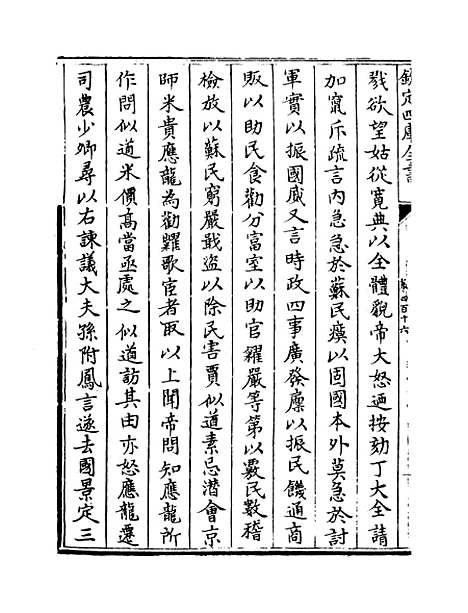 欽定四庫全書
卷四百十六
戮欲望姑從寛典以全體貌帝大怒廼按劾丁大全請
加竄斥疏言内急急於蘇民瘼以固國本外莫急於討
軍實以振國威又言時政四事廣發廪以振民饑通商
販以助民食勸分富室以助官糴嚴等第以覈民數稽
檢放以蘇民窮嚴戢盗以除民害賈似道素忌潜會京
師米貴應龍為勸糶歌宦者取以上聞帝問知應龍所
作問似道米價髙當亟處之似道訪其由亦怒應龍遷
司農少卿尋以右諫議大夫孫附鳳言遂去國景定三